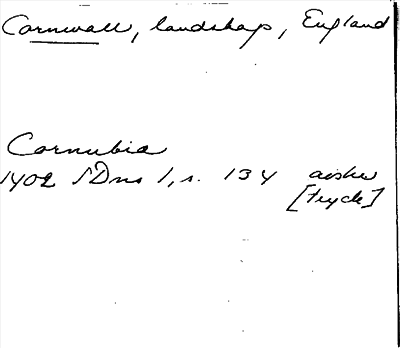 Cornwall, landskap, England
Cornubia
1402 SDns 1, s. 134 avskr
[tryck]